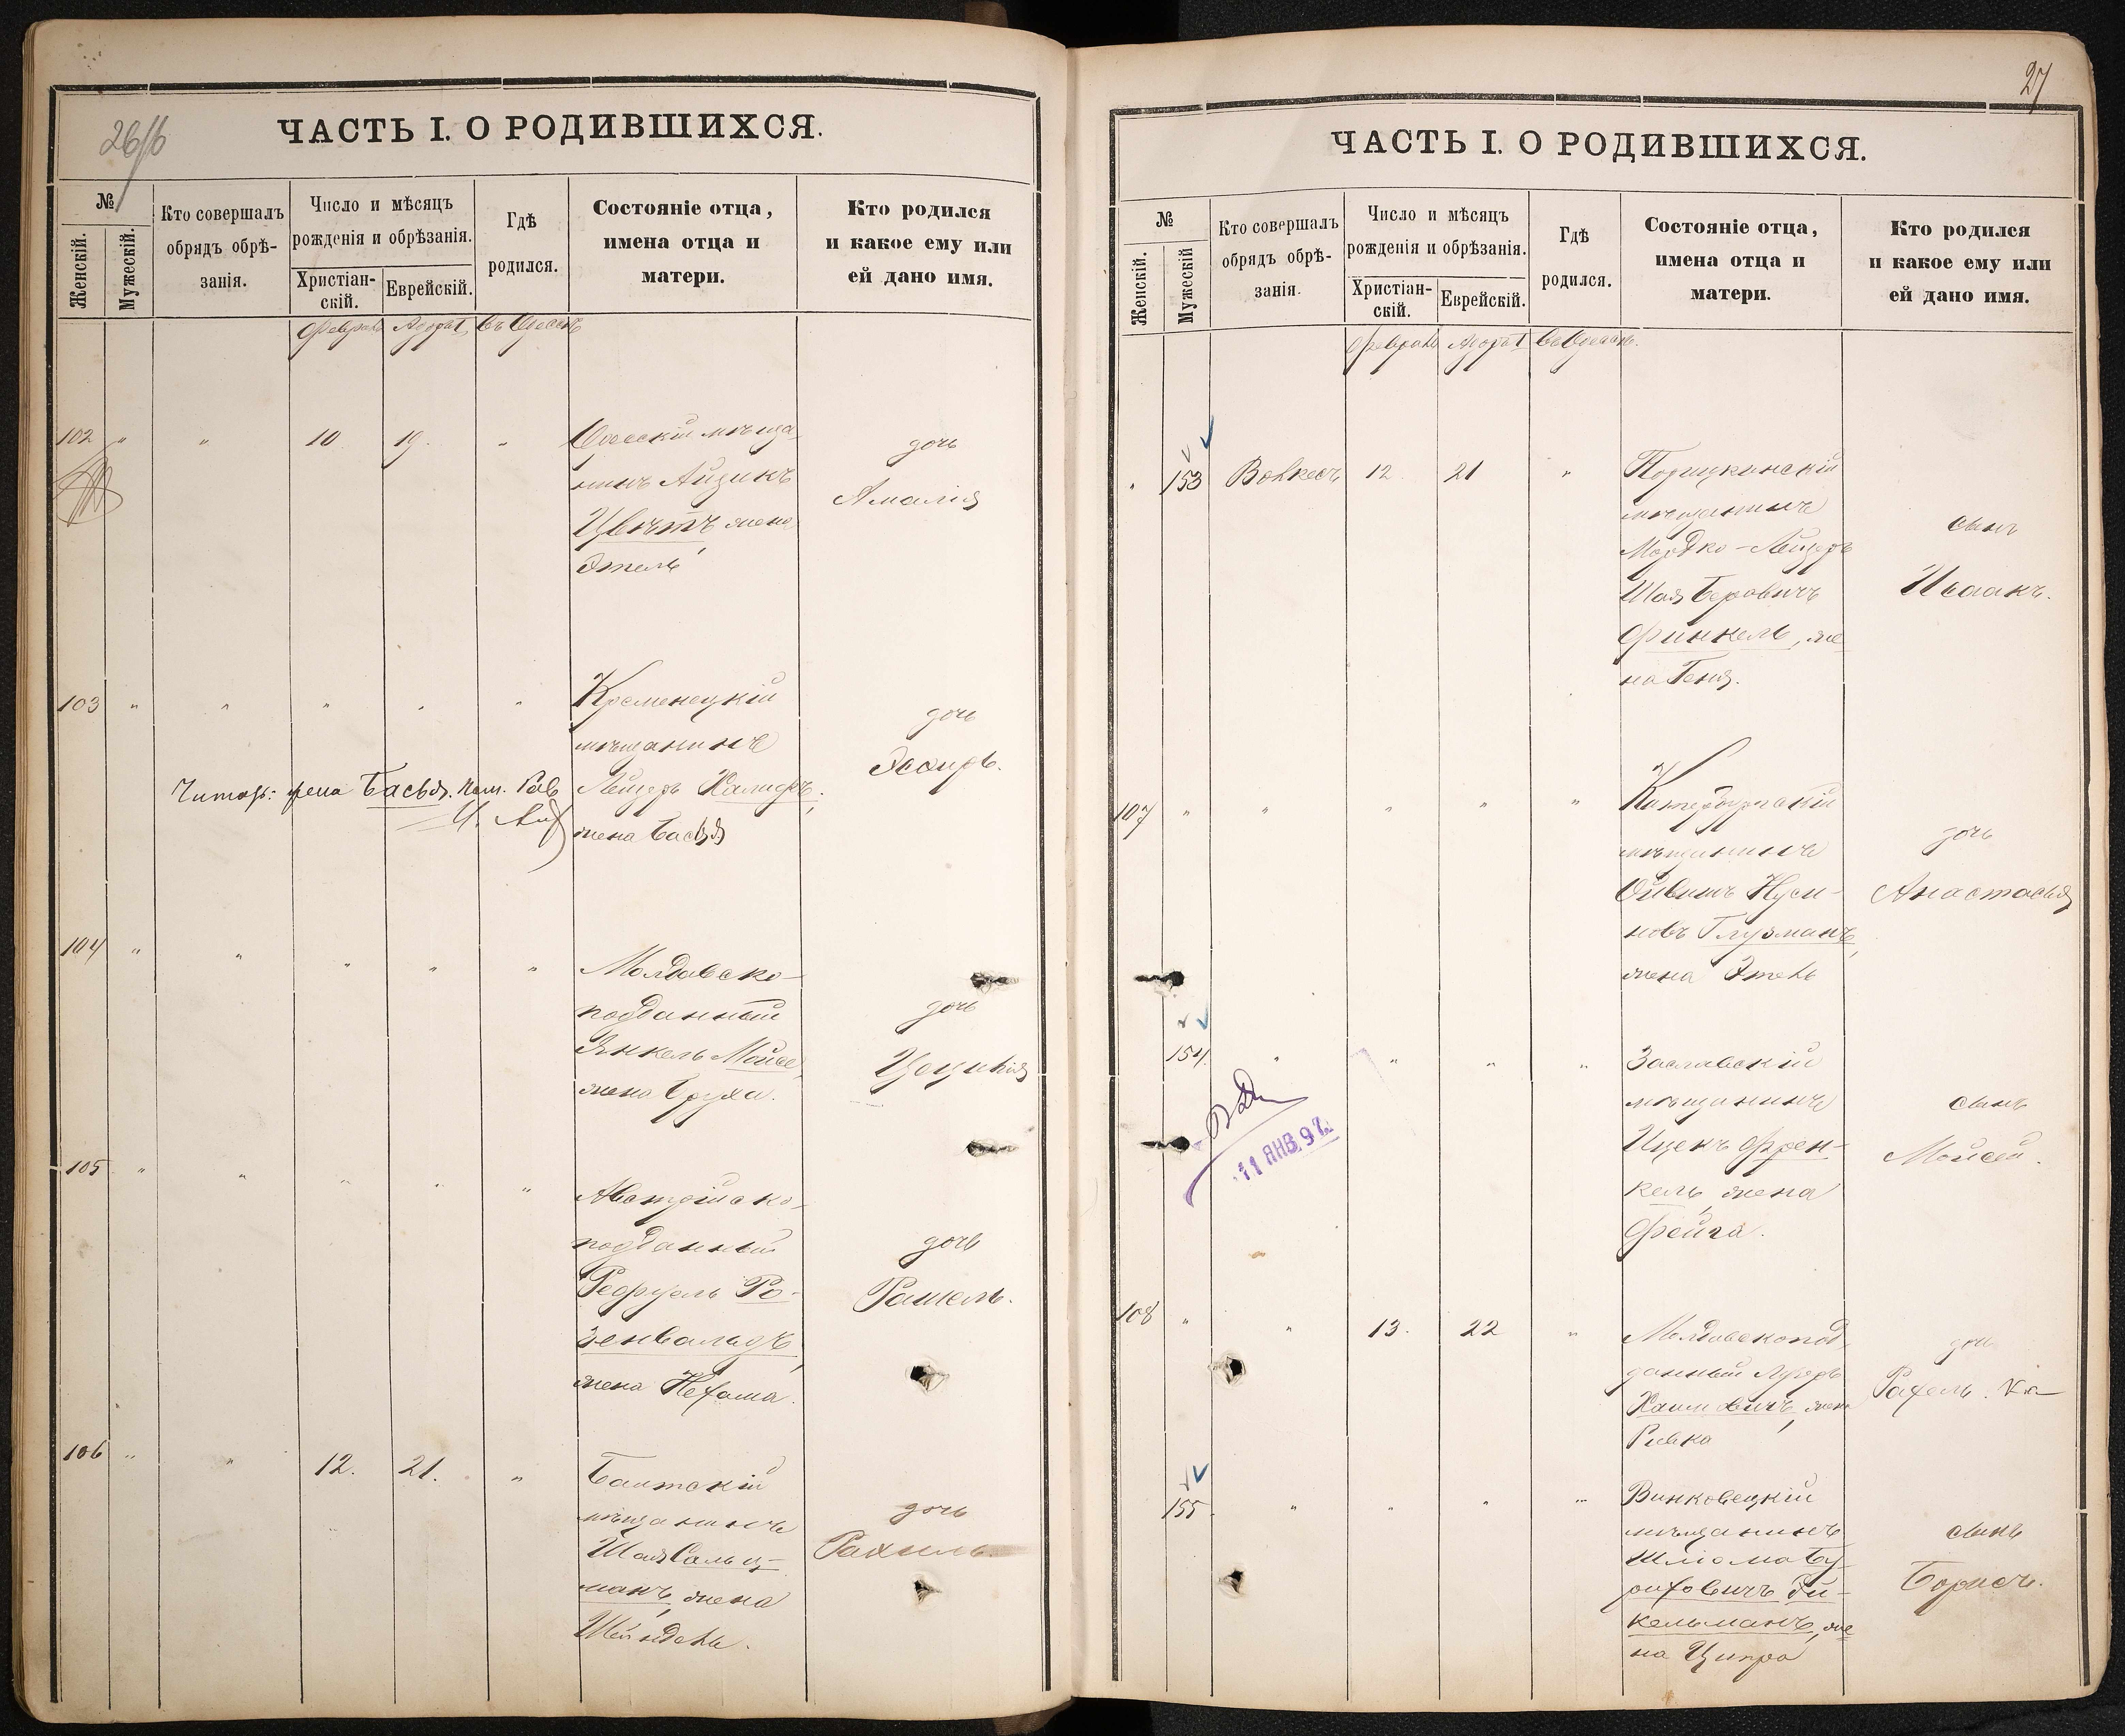 26/б
ЧАСТЬ I. О РОДИВШИХСЯ.
№
Женскій.
Мужескій.
Кто совершалъ
обрядъ обрѣ-
занія.
Число и мѣсяцъ
рожденія и обрѣзанія.
Христіан-
скій.
Еврейскій.
Гдѣ
родился.
Состояніе отца,
имена отца и
матери.
Кто родился
и какое ему или
ей дано имя.
Февраль Адаръ I въ Одессѣ
102 " " 10 19. " Одесскій мѣща-
нинъ Айзикъ
Цвѣтъ, жена
Этель
дочь
Амалія
103 " " " " " Кременецкій
мѣщанинъ
Лейзеръ
жена Бася
дочь
Эсѳирь.
жена Басья.
104 " " " " " Молдавско-
подданный
Янкель Мойсе,
жена Бруха.
дочь
Цецилія
105 " " " " " Австрійско-
подданный
Ро-
зенвальдъ,
жена Нехама.
дочь
Рашель.
106 " " 12. 21. " Балтскій
мѣщанинъ
Шая Сальц-
манъ, жена
Шейндель.
дочь
Рахиль.
27
ЧАСТЬ I. О РОДИВШИХСЯ.
№
Женскій.
Мужескій
Кто совершалъ
обрядъ обрѣ-
занія.
Число и мѣсяцъ
рожденія и обрѣзанія.
Христіан-
скій.
Еврейскій.
Гдѣ
родился.
Состояніе отца,
имена отца и
матери.
Кто родился
и какое ему или
ей дано имя.
Февраль Адаръ I въ Одессѣ.
" 153 Волкесъ 12. 21 "
мѣщанинъ
Мордко-Лейзеръ
Шая Беровичъ
Финкель, же-
на Геня.
сынъ
Исаакъ.
107 " " " " " Катербургскій
мѣщанинъ
Нуси-
новъ Глузманъ,
жена Этель
дочь
Анастасья
154. " " " " Заславскій
мѣщанинъ
Ицекъ Френ-
кель, жена
Фейга.
сынъ
Мойсей.
11 ЯНВ. 97.
108 " " 13. 22 " Молдавскопод-
данный
Хаимовичъ, жена
Ривка
дочь
Рахель.
155. " " " " Винковецкій
мѣщанинъ
Шліома Бу-
риховичъ Ди-
кельманъ, же-
на Ципра
сынъ
Борисъ.